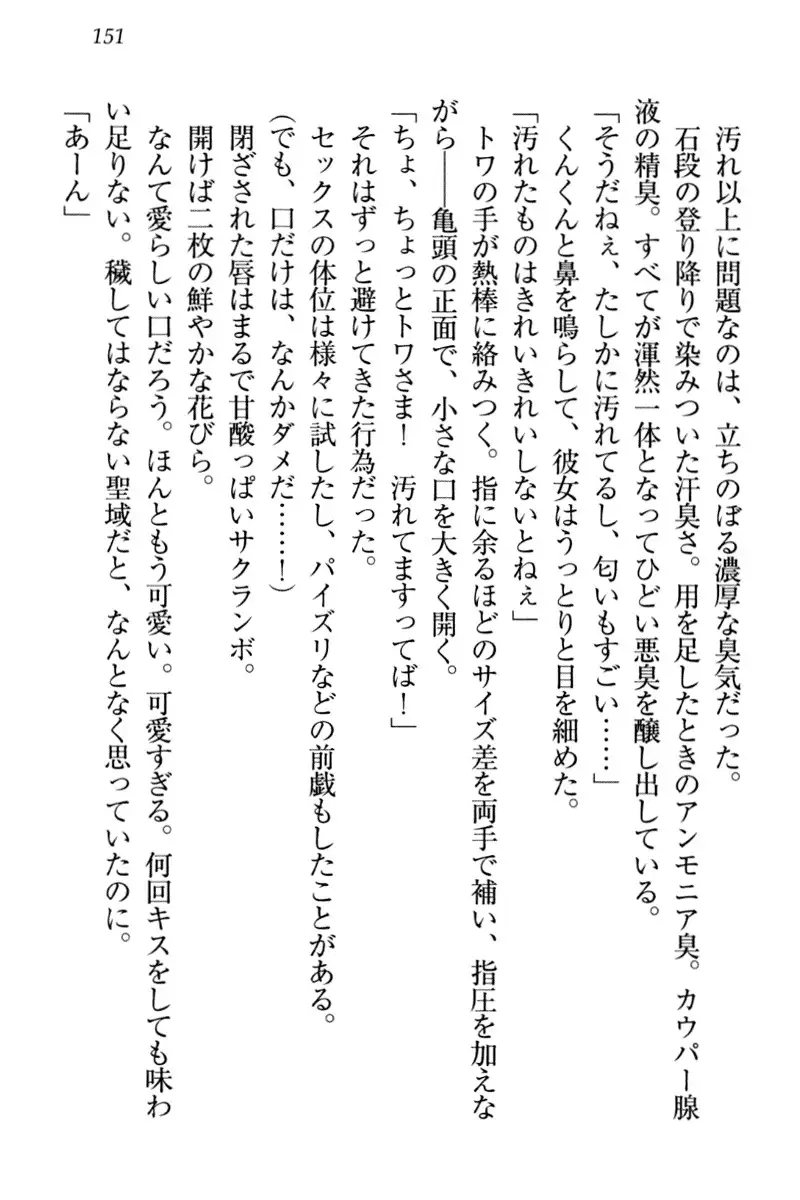 151
汚れ以上に問題なのは、立ちのぼる濃厚な臭気だった。
石段の登り降りで染みついた汗臭さ。用を足したときのアンモニア臭。カウパー腺
液の精臭。すべてが渾然一体となってひどい悪臭を醸し出している。
「そうだねぇ、たしかに汚れてるし、匂いもすごい……」
くんくんと鼻を鳴らして、彼女はうっとりと目を細めた。
「汚れたものはきれいきれいしないとねぇ」
トワの手が熱棒に絡みつく。指に余るほどのサイズ差を両手で補い、指圧を加えな
がら――亀頭の正面で、小さな口を大きく開く。
「ちょ、ちょっとトワさま！　汚れてますってば！」
それはずっと避けてきた行為だった。
セックスの体位は様々に試したし、パイズリなどの前戯もしたことがある。
(でも、口だけは、なんかダメだ……！)
閉ざされた唇はまるで甘酸っぱいサクランボ。
開けば二枚の鮮やかな花びら。
なんて愛らしい口だろう。ほんともう可愛い。可愛すぎる。何回キスをしても味わ
い足りない。穢してはならない聖域だと、なんとなく思っていたのに。
「あーん」